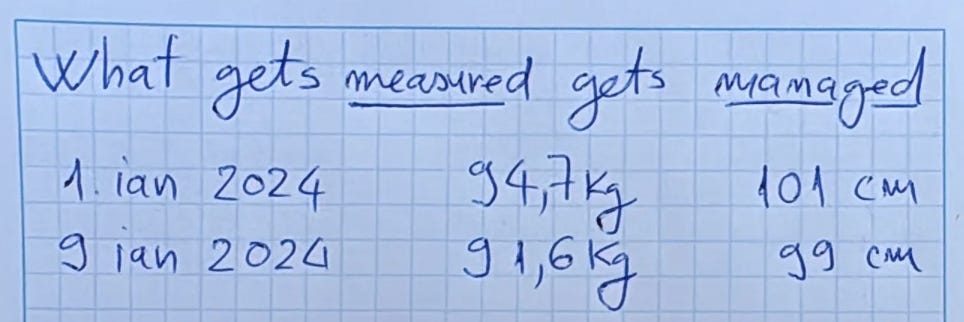 What gets measured gets managed
1. ian 2024 94,7 kg 101 cm
9 ian 2024 91,6 kg 99 cm